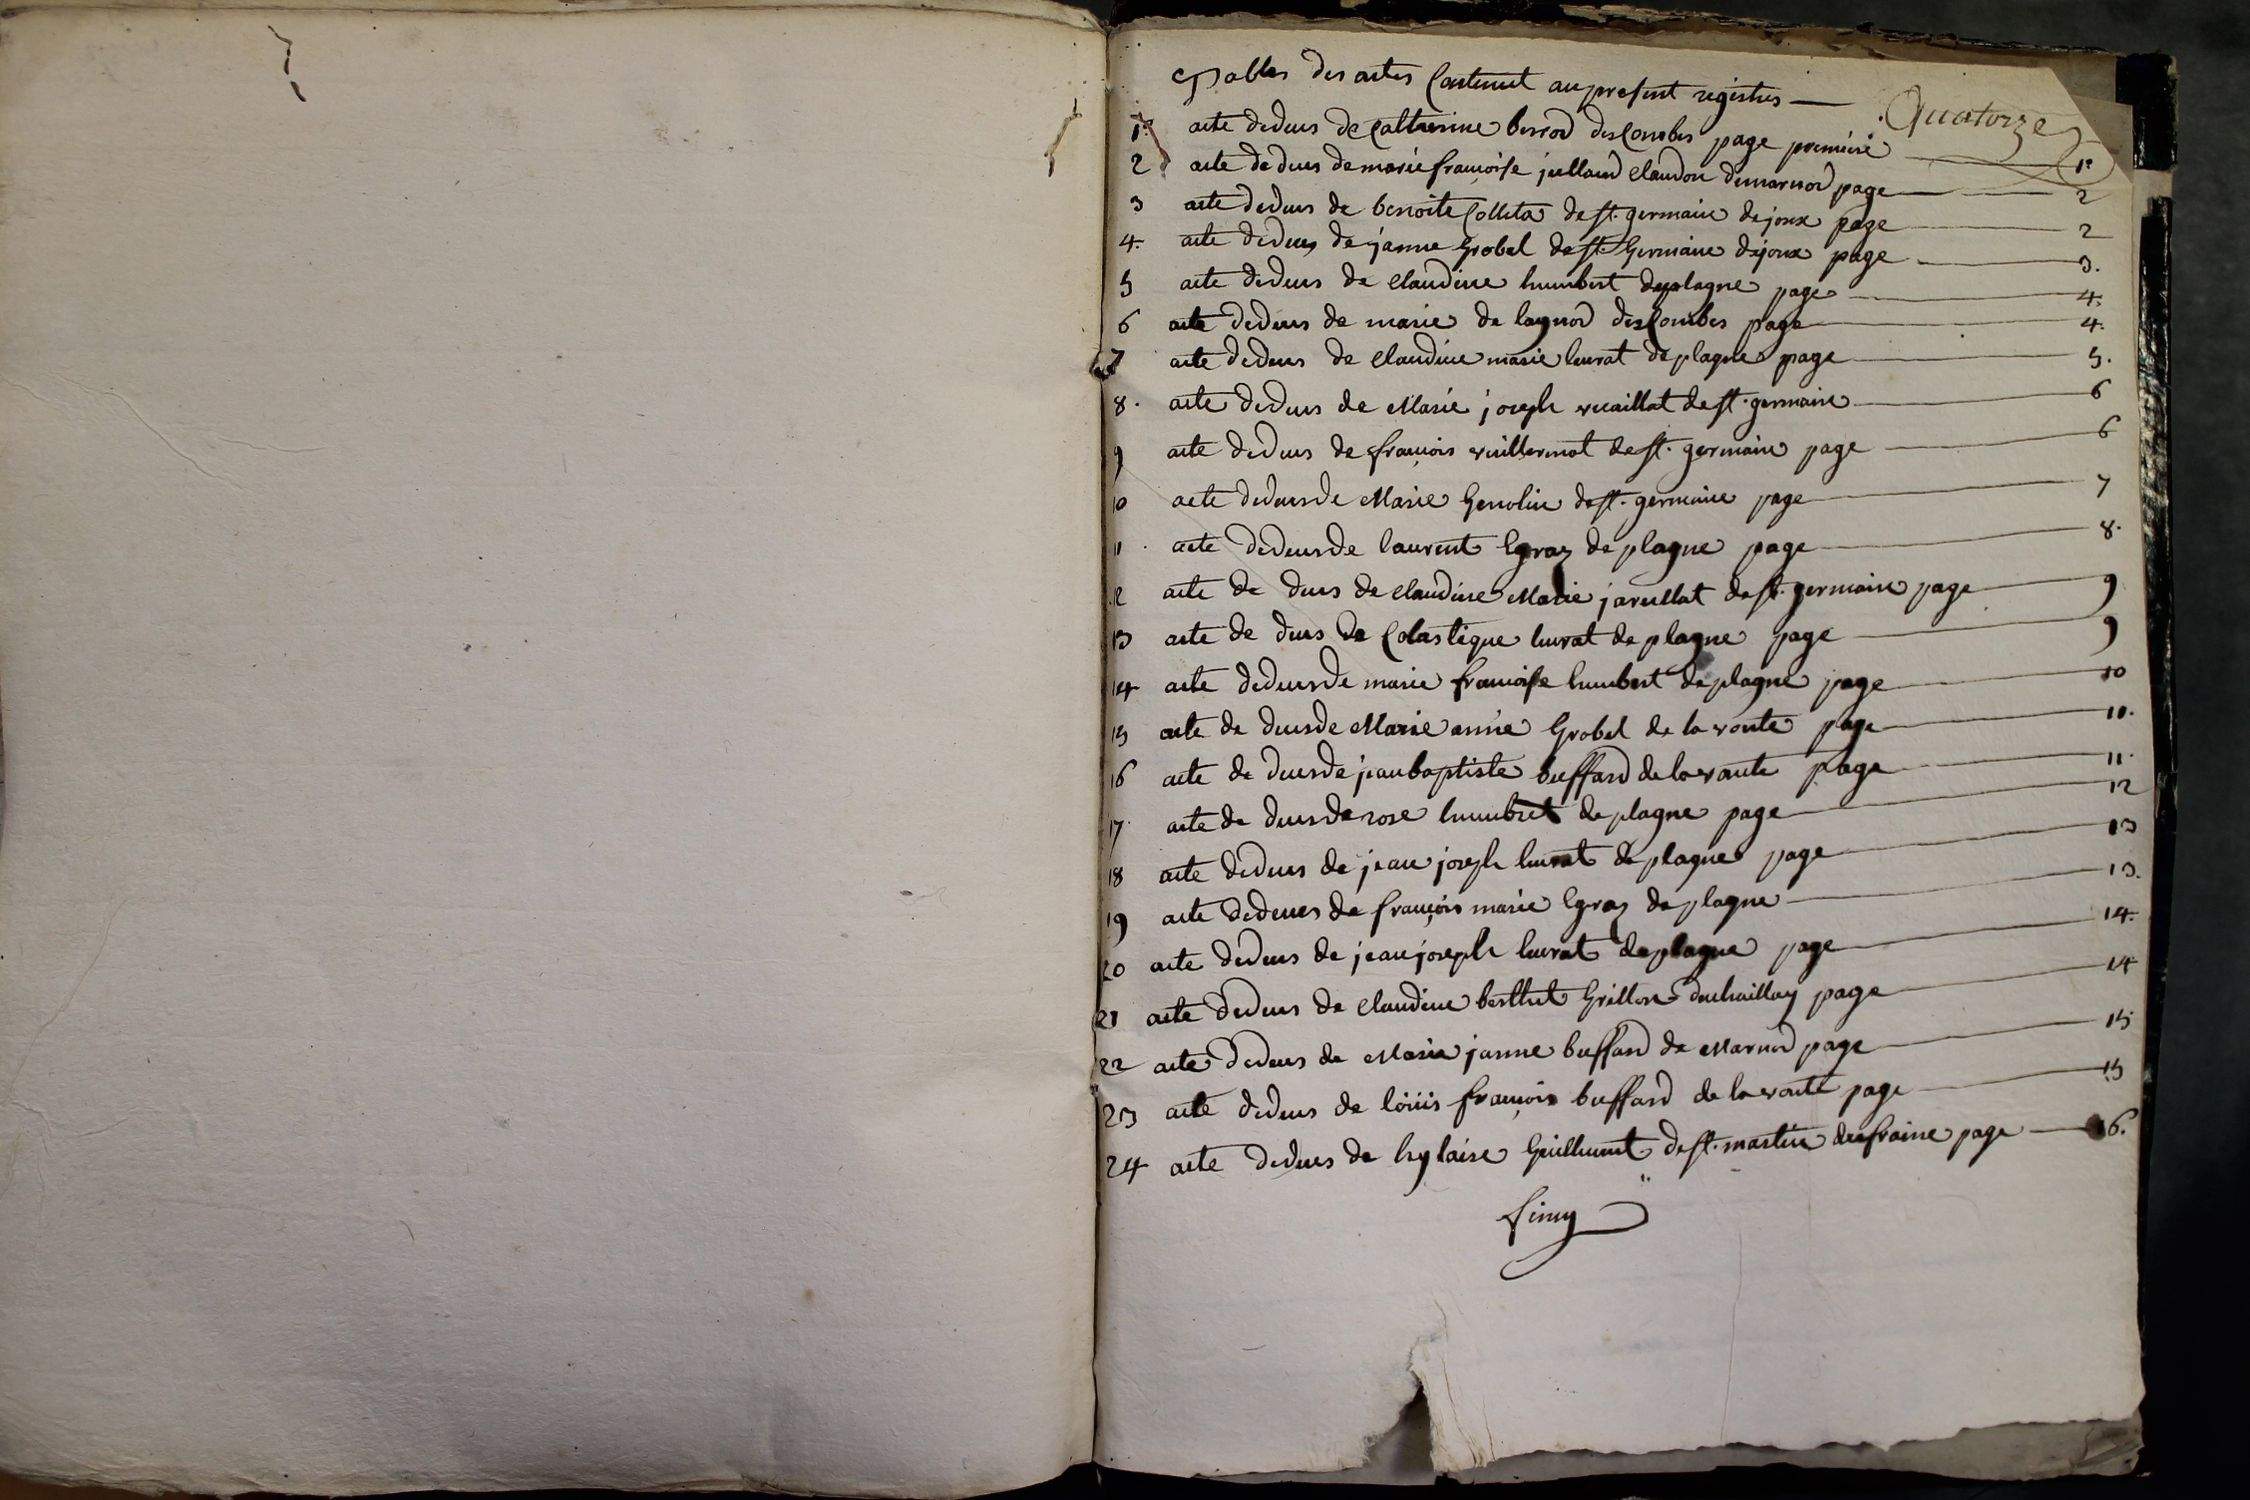 Tables des actes Contenut au present registres —
Quatorze
1º acte dedeces de Catherine bornod des Combes page premiere — 1º
2 acte dedeces de marie francoise julland Claudon demarnod page — 2
3 acte dedeces de benoite Colleta de st. germain dejoux page — 2
4. acte dedeces de janne Grobel de st. Germaine dejoux page — 3.
5 acte dedeces de Claudine humbert deplagne page — 4.
6 acte dedeces de marie de lagnod des Combes page — 4.
7 acte dedeces de Claudine marie leurat de plagne page — 5.
8. acte dedeces de Marie joseph vuaillat de st. germaine — 6
9 acte dedeces de françois vuillermot de st. germaine page — 6
10 acte dedeces de Marie Genolin de st. germaine page — 7
11. acte dedeces de laurent Egraz de plagne page — 8.
12 acte de deces de Claudine Marie javullat de st. germaine page — 9
13 acte de deces de Colastique leurat de plagne page — 9
14 acte dedeces de marie francoise humbert de plagne page — 10
15 acte de deces de Marie anne Grobel de la voute page — 11.
16 acte de deces de jean baptiste buffard de la voute page — 11.
17. acte de deces de rose humbret de plagne page — 12
18 acte dedeces de jean joseph leurat de plagne page — 13
19 acte dedeces de françois marie Egraz de plagne — 13.
20 acte dedeces de jean joseph leurat de plagne page — 14.
21 acte dedeces de Claudine berthet Grillon page — 14
22 acte dedeces de Marie janne buffard de Marnod page — 15
23 acte dedeces de loüis françois buffard de la voute page — 15
24 acte dedeces de hylaire Guillumot de st. martin dufraine page — 16.
finy